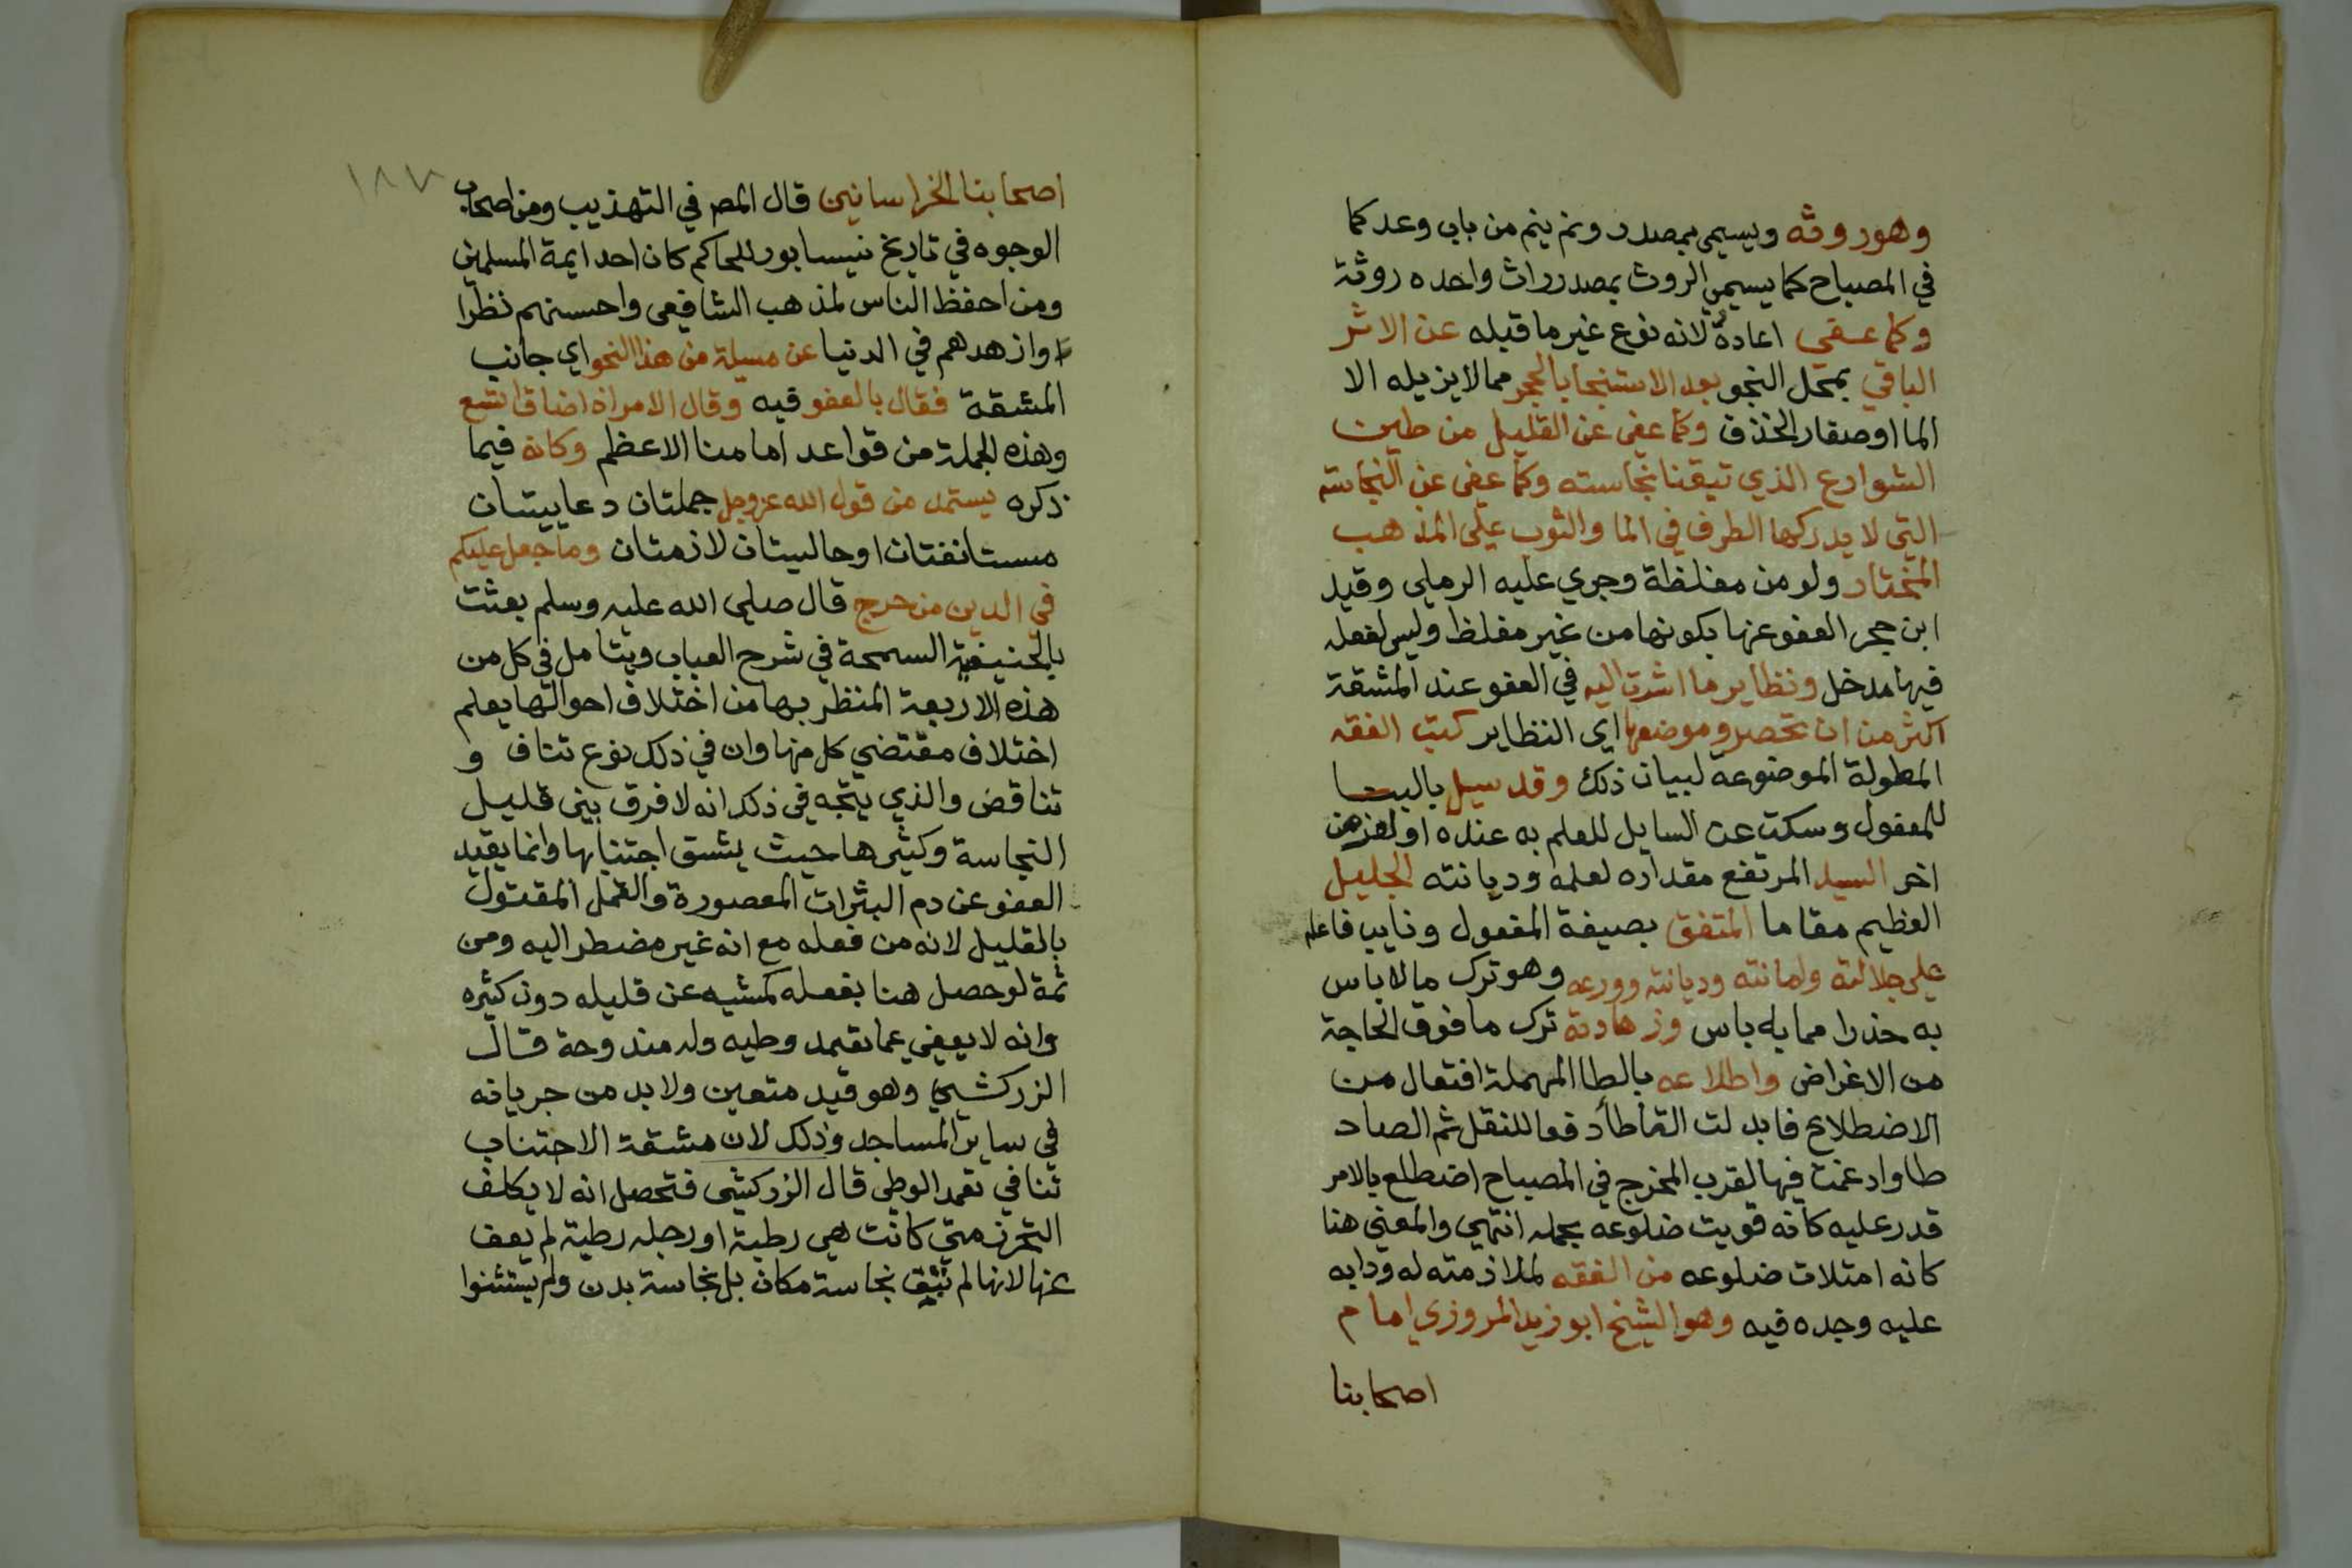 وهوروثه ويسمى بمصدر ونم ينم من باب وعد كما
في المصباح كما يسمى الروث بمصدر راث واحده روثة
وكما عفي اعاده لانه نوع غير ما قبله عن الاثر
الباقي بمحل النجو بعد الاستنجا بالحجر مما لا يزيله الا
الما او صغار الخذف وكما عفي عن القليل من طين
الشوارع الذي تيقنا نجاسته وكما عفي عن النجاسة
التي لا يدركها الطرف في الما والثوب على المذهب
المختار ولو من مغلظة وجري عليه الرملي وقيد
ابن حجر العفو عنها بكونها من غير مغلظ وليس لفعله
فيها مدخل ونظاير ما اشرت اليه في العفو عند المشقة
اكثر من ان تحصر وموضعها اي النظاير كتب الفقه
المطولة الموضوعة لبيان ذلك وقد سيل بالبنا
للمفعول وسكت عن السايل للعلم به عنده او لغرض
اخر السيد المرتفع مقداره لعلمه وديانته الجليل
العظيم مقاما المتفق بصيغة المفعول ونايب فاعله
على جلالته وامانته وديانته وورعه وهو ترك ما لا باس
به حذرا مما به باس وزهادته ترك ما فوق الحاجة
من الاغراض واطلاعه بالطا المهملة افتعال من
الاضطلاع فابدلت التا طا دفعا للنقل ثم الصاد
طا وادغمت فيها لقرب المخرج في المصباح اضطلع بالامر
قدر عليه كانه قويت ضلوعه بحمله انتهي والمعني هنا
كانه امتلات ضلوعه من الفقه لملازمته له ودابه
عليه وجده فيه وهو الشيخ ابو زيد المروزي امام
اصحابنا
١٨٧
اصحابنا الخراسانين قال المص في التهذيب ومن اصحاب
الوجوه في تاريخ نيسابور للحاكم كان احد ايمة المسلمين
ومن احفظ الناس لمذهب الشافعي واحسنهم نظرا
وازهدهم في الدنيا عن مسيلة من هذا النحو اي جانب
المشقة فقال بالعفو فيه وقال الامر اذا ضاق اتسع
وهذه الجملة من قواعد امامنا الاعظم وكانه فيما
ذكره يستمد من قول الله عز وجل جملتان دعاييتان
مستانفتان او حاليتان لازمتان وما جعل عليكم
في الدين من حرج قال صلى الله عليه وسلم بعثت
بالحنيفية السمحة في شرح العباب ويتامل في كل من
هذه الاربعة المنظر بها من اختلاف احوالها يعلم
اختلاف مقتضي كل منها وان في ذلك نوع تناف و
تناقض والذي يتجه في ذلك انه لا فرق بين قليل
النجاسة وكثيرها حيث يشق اجتنابها وانما يقيد
العفو عن دم البثرات المعصورة والقمل المقتول
بالقليل لانه من فعله مع انه غير مضطر اليه ومن
ثمة لو حصل هنا بفعله كمشيه عن قليله دون كثيره
وانه لا يعفي عما تعمد وطيه وله مندوحة قال
الزركشي وهو قيد متعين ولا بد من جريانه
في ساير المساجد وذلك لان مشقة الاجتناب
تنافي تعمد الوطي قال الزركشي فتحصل انه لا يكلف
التحرز متي كانت هي رطبة او رجله رطبة لم يعف
عنها لانها لم تبق نجاسة مكان بل نجاسة بدن ولم يستثنوا